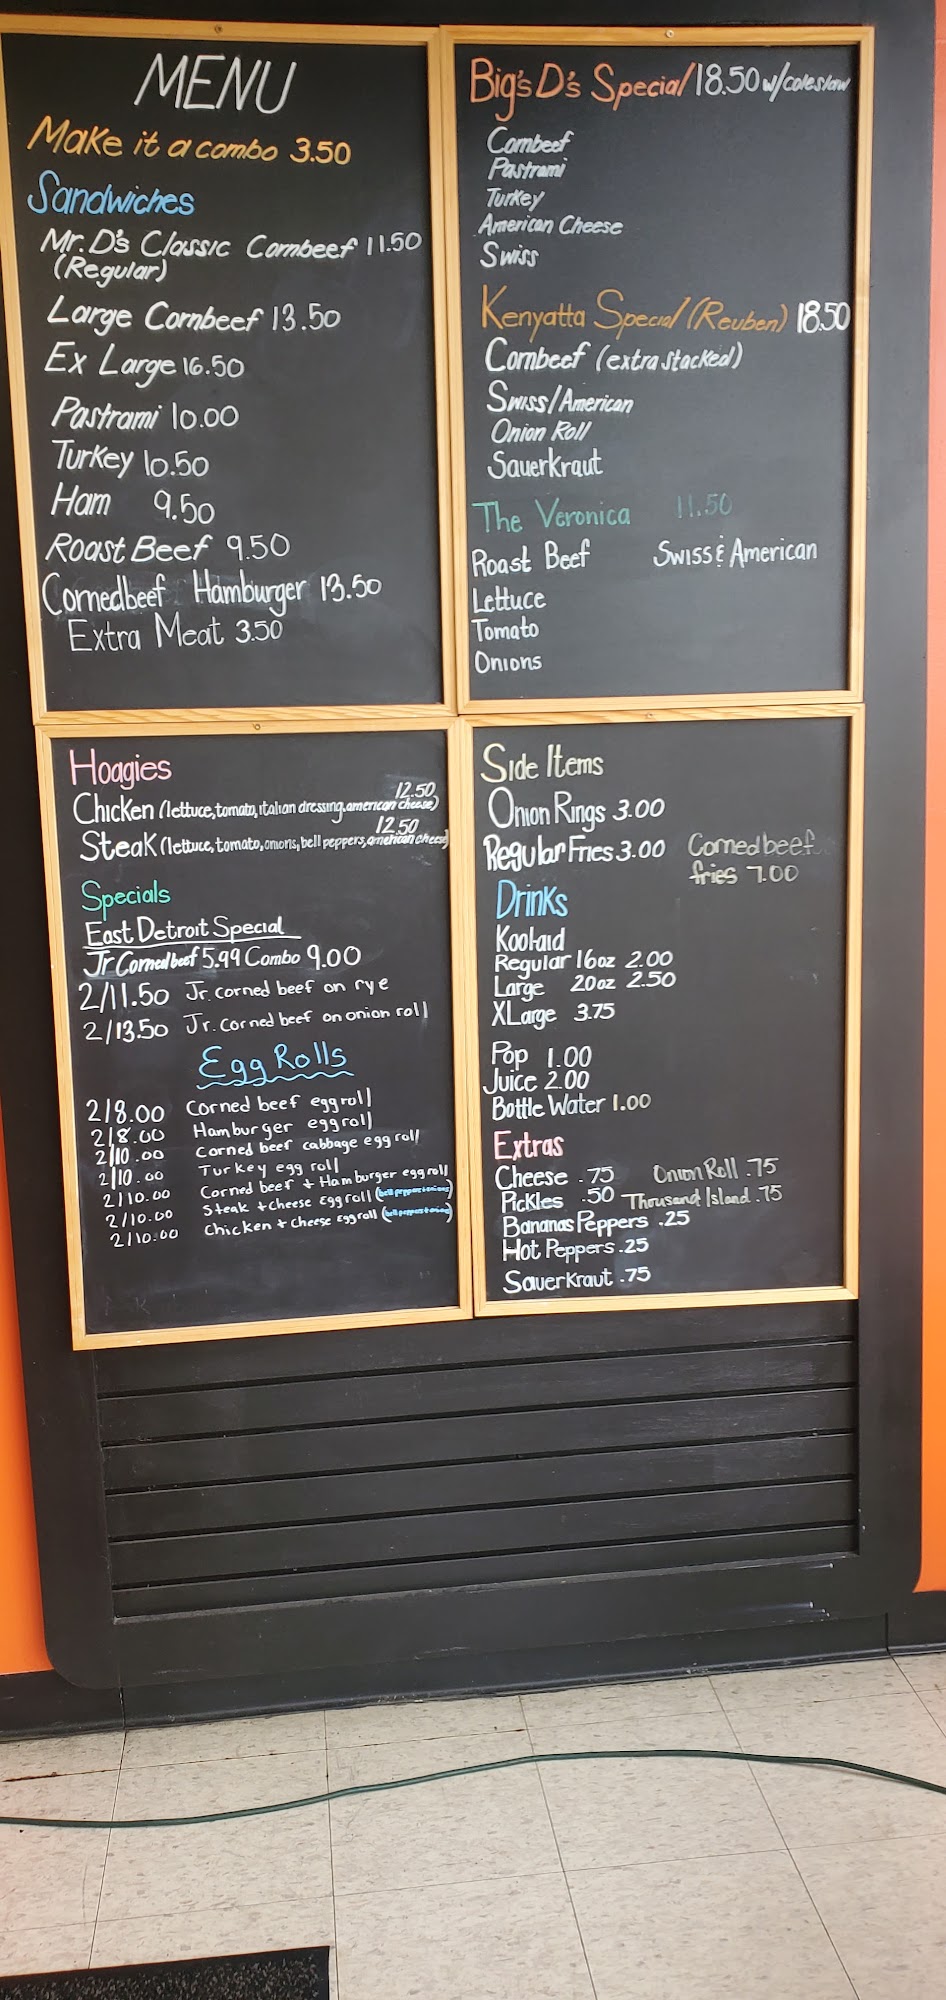 MENU
Make it a combo 3.50
Sandwiches
Mr. D's Classic Cornbeef 11.50
(Regular)
Large Cornbeef 13.50
Ex Large 16.50
Pastrami 10.00
Turkey 10.50
Ham 9.50
Roast Beef 9.50
Cornedbeef Hamburger 13.50
Extra Meat 3.50
Big's D's Special 18.50 w/coleslaw
Cornbeef
Pastrami
Turkey
American Cheese
Swiss
Kenyatta Special (Reuben) 18.50
Cornbeef (extra stacked)
Swiss/American
Onion Roll
Sauerkraut
The Veronica 11.50
Roast Beef Swiss & American
Lettuce
Tomato
Onions
Hoagies
12.50
Chicken (lettuce, tomato, italian dressing, american cheese)
12.50
Steak (lettuce, tomato, onions, bell peppers, american cheese)
Specials
East Detroit Special
Jr Cornedbeef 5.99 Combo 9.00
2/11.50 Jr. corned beef on rye
2/13.50 Jr. corned beef on onion roll
Egg Rolls
2/8.00 Corned beef eggroll
2/8.00 Hamburger eggroll
2/10.00 Corned beef cabbage egg roll
2/10.00 Turkey egg roll
2/10.00 Corned beef + Hamburger egg roll
2/10.00 Steak + cheese Eggroll (bell peppers + onions)
2/10.00 Chicken + cheese Eggroll (bell peppers + onions)
Side Items
Onion Rings 3.00
Regular Fries 3.00 Cornedbeef
fries 7.00
Drinks
Koolaid
Regular 16oz 2.00
Large 20oz 2.50
XLarge 3.75
Pop 1.00
Juice 2.00
Bottle Water 1.00
Extras
Cheese .75 Onion Roll .75
Pickles .50 Thousand Island .75
Bananas Peppers .25
Hot Peppers .25
Sauerkraut .75